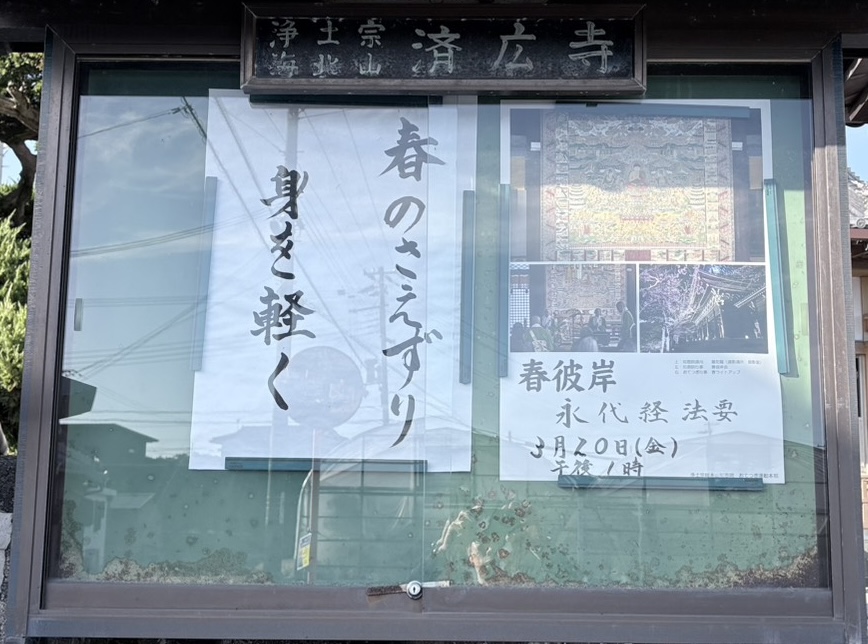 浄土宗
海北山
済広寺
春のさえずり
身を軽く
春彼岸
永代経法要
3月20日(金)
午後1時